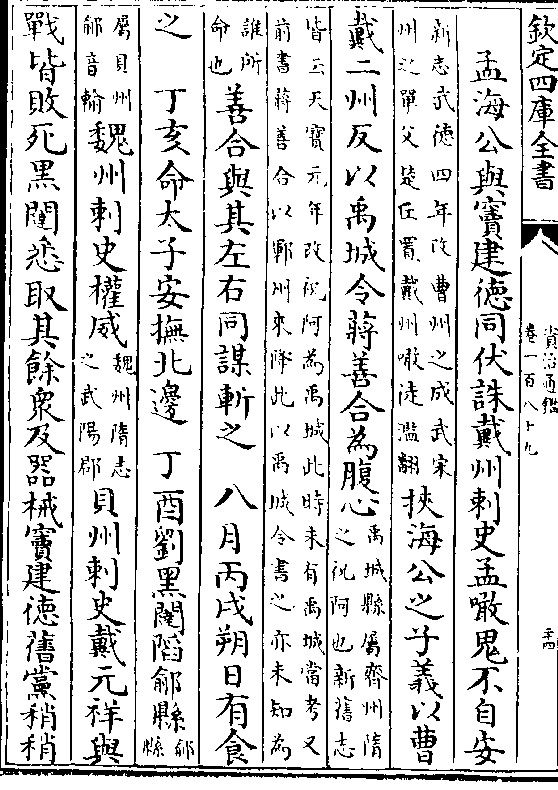 欽定四庫全書
資治通鑑
卷一百八十九
孟海公與竇建徳同伏誅戴州刺史孟噉鬼不自安
新志武徳四年改曹州之成武宋
州之單父楚丘置戴州噉徒濫翻
挾海公之子義以曹
戴二州反以禹城令蔣善合為腹心
禹城縣屬齊州隋
之祝阿也新舊志
皆云天寶元年改祝阿為禹城此時未有禹城當考又
前書蔣善合以鄆州來降此以禹城令書之亦未知為
誰所
命也
善合與其左右同謀斬之　八月丙戌朔日有食
之　丁亥命太子安撫北邊　丁酉劉黑闥陷鄃縣
鄃
縣
屬貝州
鄃音輸
魏州刺史權威
魏州隋志
之武陽郡
貝州刺史戴元祥與
戰皆敗死黑闥悉取其餘衆及器械竇建徳舊黨稍稍